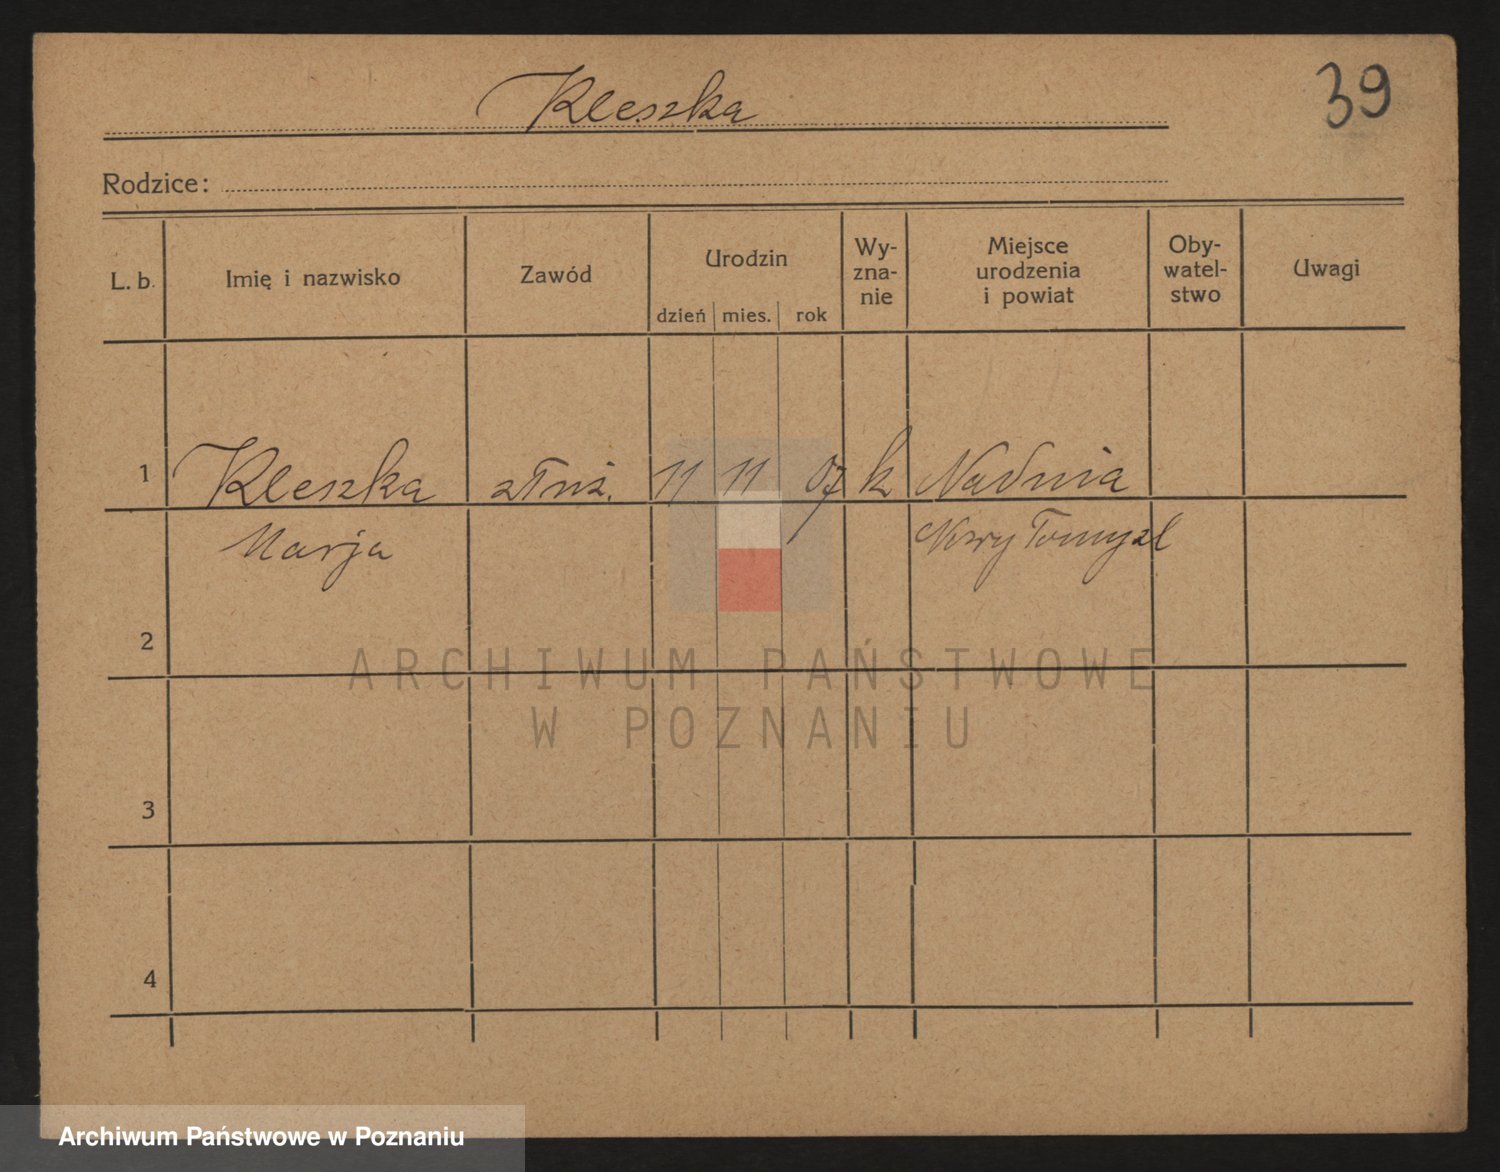 Kleszka
39
Rodzice:
L. b.
Imię i nazwisko
Zawód
Urodzin
dzień mies. rok
Wy-
zna-
nie
Miejsce
urodzenia
i powiat
Oby-
watel-
stwo
Uwagi
1 Kleszka służ. 11 11 07 k Nadnia
Marja Nowy Tomyśl
2
3
4
ARCHIWUM PAŃSTWOWE
W POZNANIU
Archiwum Państwowe w Poznaniu